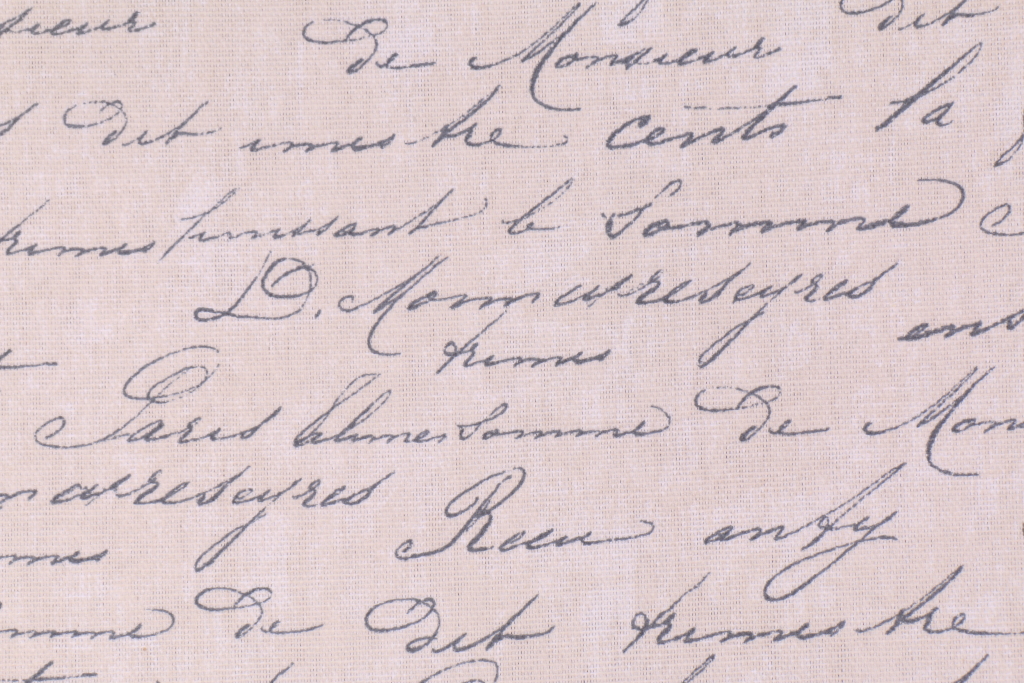 sieur De Monsieur dit
dit imestre cents la
trimes puissant le Somme
D. Monmatreseyres
trimes ens
Paris somme De Mon
matreseyres Recu anty
mes
mme De dit trimestre